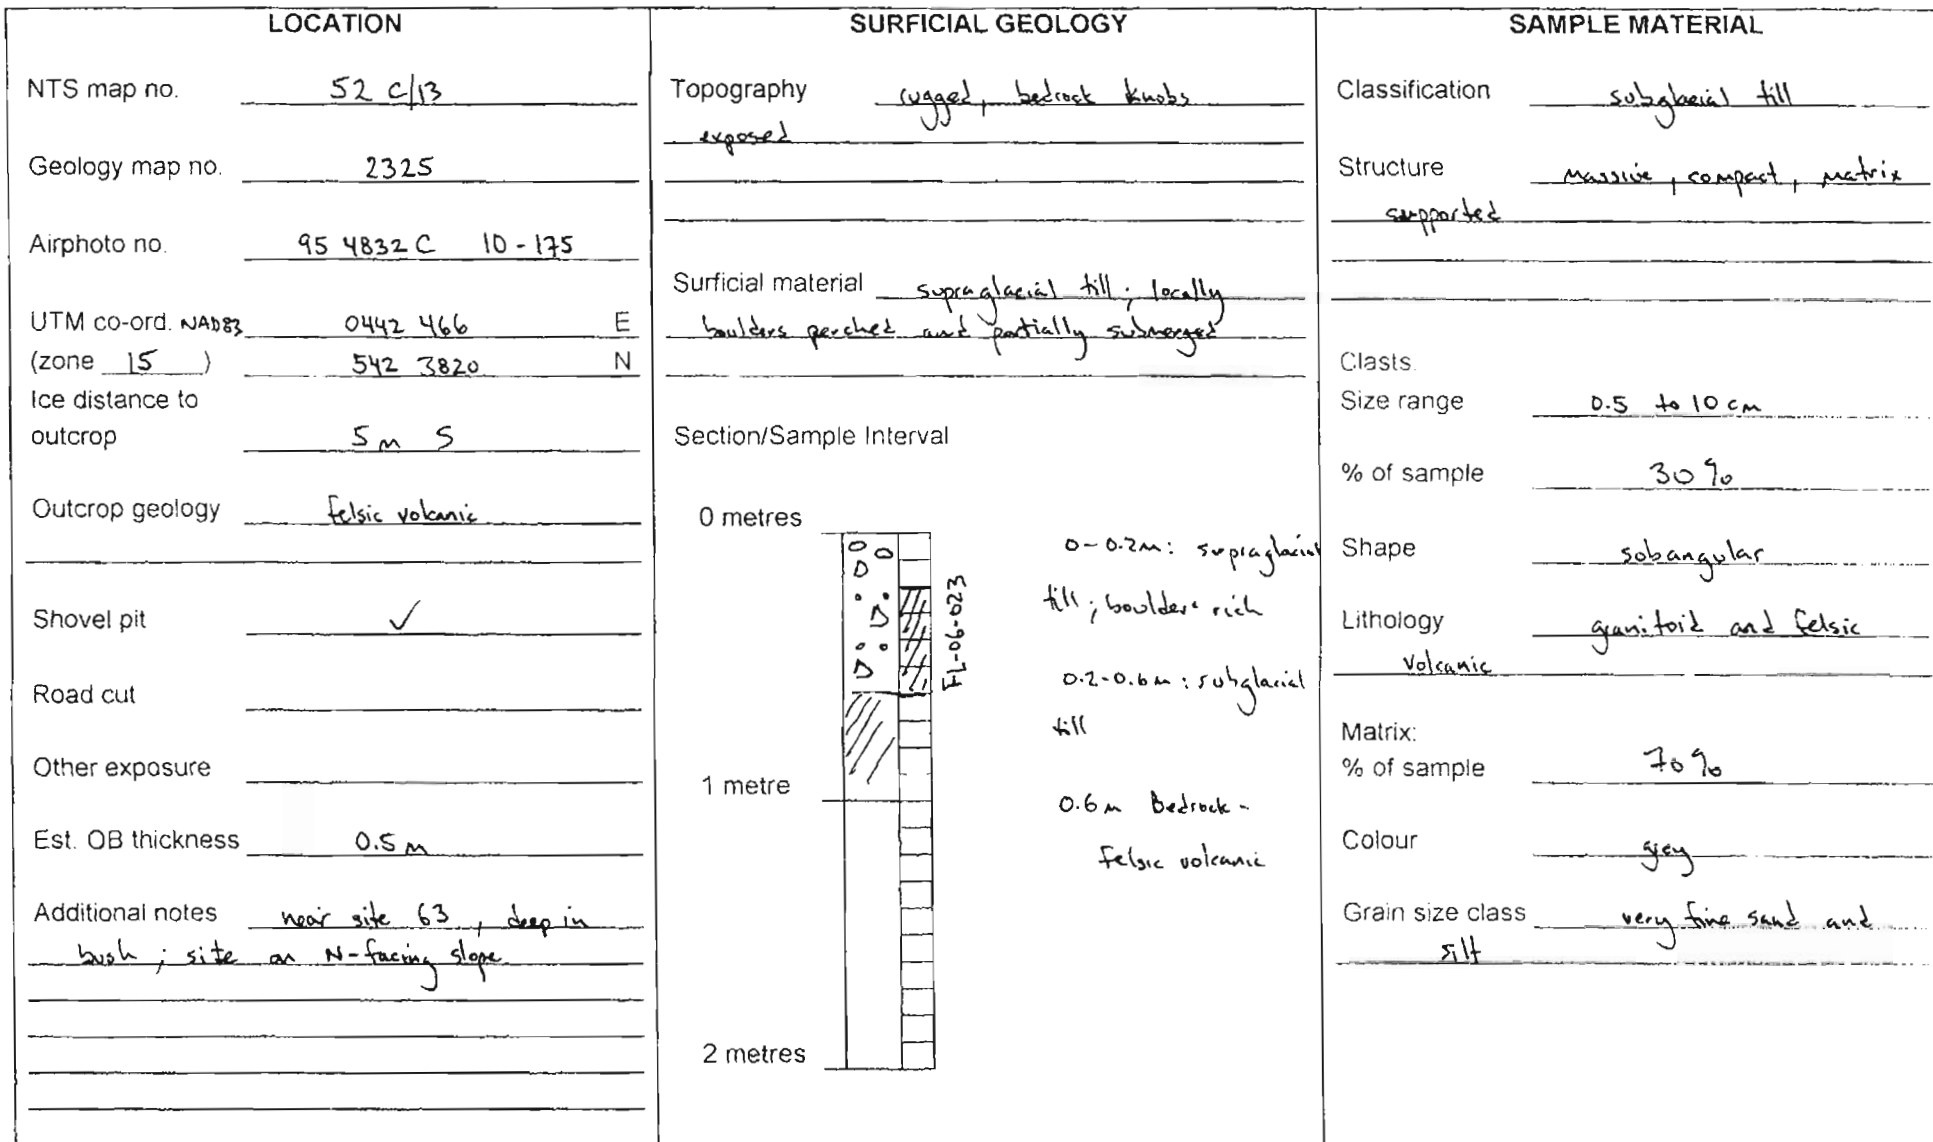 LOCATION
NTS map no. 52 C/13
Geology map no. 2325
Airphoto no. 95 4832 C 10-175
UTM co-ord. NAD83 0442 466 E
(zone 15) 542 3820 N
Ice distance to
outcrop 5 m S
Outcrop geology felsic volcanic
Shovel pit ✓
Road cut
Other exposure
Est. OB thickness 0.5 m
Additional notes near site 63, deep in
bush; site on N-facing slope
SURFICIAL GEOLOGY
Topography rugged, bedrock knobs
exposed
Surficial material supraglacial till; locally
boulders perched and partially submerged
Section/Sample Interval
0 metres
1 metre
2 metres
FL-06-023
0-0.2m: supraglacial
till; boulder-rich
0.2-0.6m: subglacial
till
0.6m Bedrock -
felsic volcanic
SAMPLE MATERIAL
Classification subglacial till
Structure massive, compact, matrix
supported
Clasts
Size range 0.5 to 10 cm
% of sample 30%
Shape subangular
Lithology granitoid and felsic
volcanic
Matrix:
% of sample 70%
Colour grey
Grain size class very fine sand and
silt